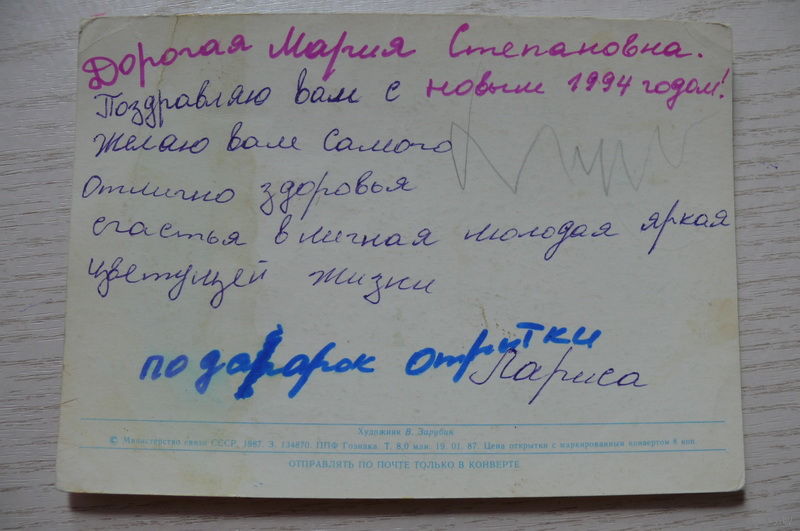 Дорогая Мария Степановна.
Поздравляю вам с новым 1994 годом!
желаю вам самого
отлично здоровья
счастья в личная молодая яркая
цветущей жизни
подарок отритки
Лариса
Художник В. Зарубин
© Министерство связи СССР, 1987. З. 134870. ППФ Гознака. Т. 8,0 млн. 19. 01. 87. Цена открытки с маркированным конвертом 8 коп.
ОТПРАВЛЯТЬ ПО ПОЧТЕ ТОЛЬКО В КОНВЕРТЕ